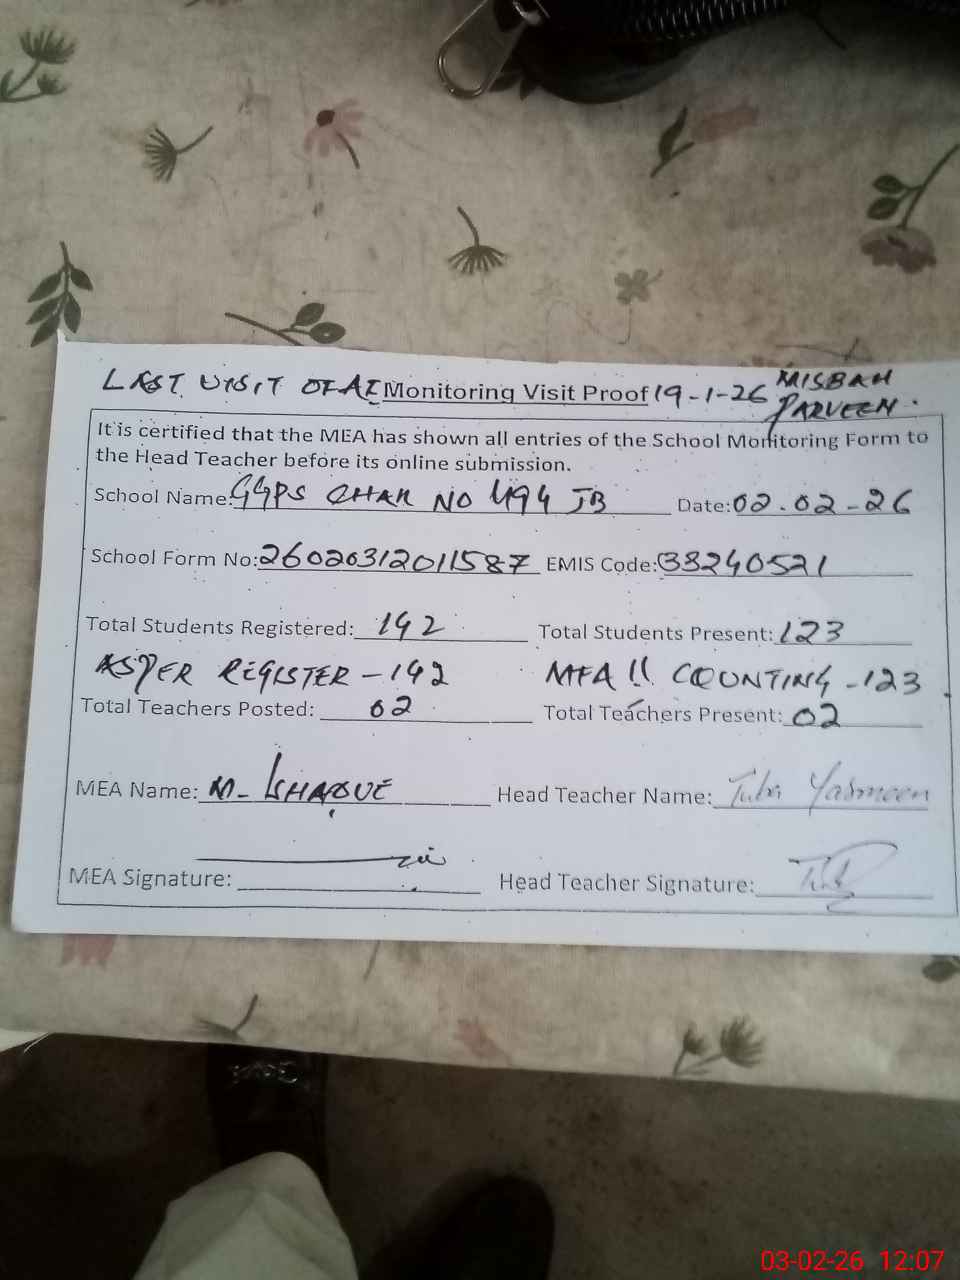 LAST VISIT OF AE Monitoring Visit Proof 19-1-26 MISBAH PARVEEN.
It is certified that the MEA has shown all entries of the School Monitoring Form to
the Head Teacher before its online submission.
School Name: GGPS CHAK NO 494 JB Date: 02.02-26
School Form No: 26020312011587 EMIS Code: 33240521
Total Students Registered: 142 Total Students Present: 123
AS PER REGISTER - 142 MEA'S COUNTING - 123
Total Teachers Posted: 02 Total Teachers Present: 02
MEA Name: M- Head Teacher Name: Tuba Yasmeen
MEA Signature: Head Teacher Signature:
03-02-26 12:07